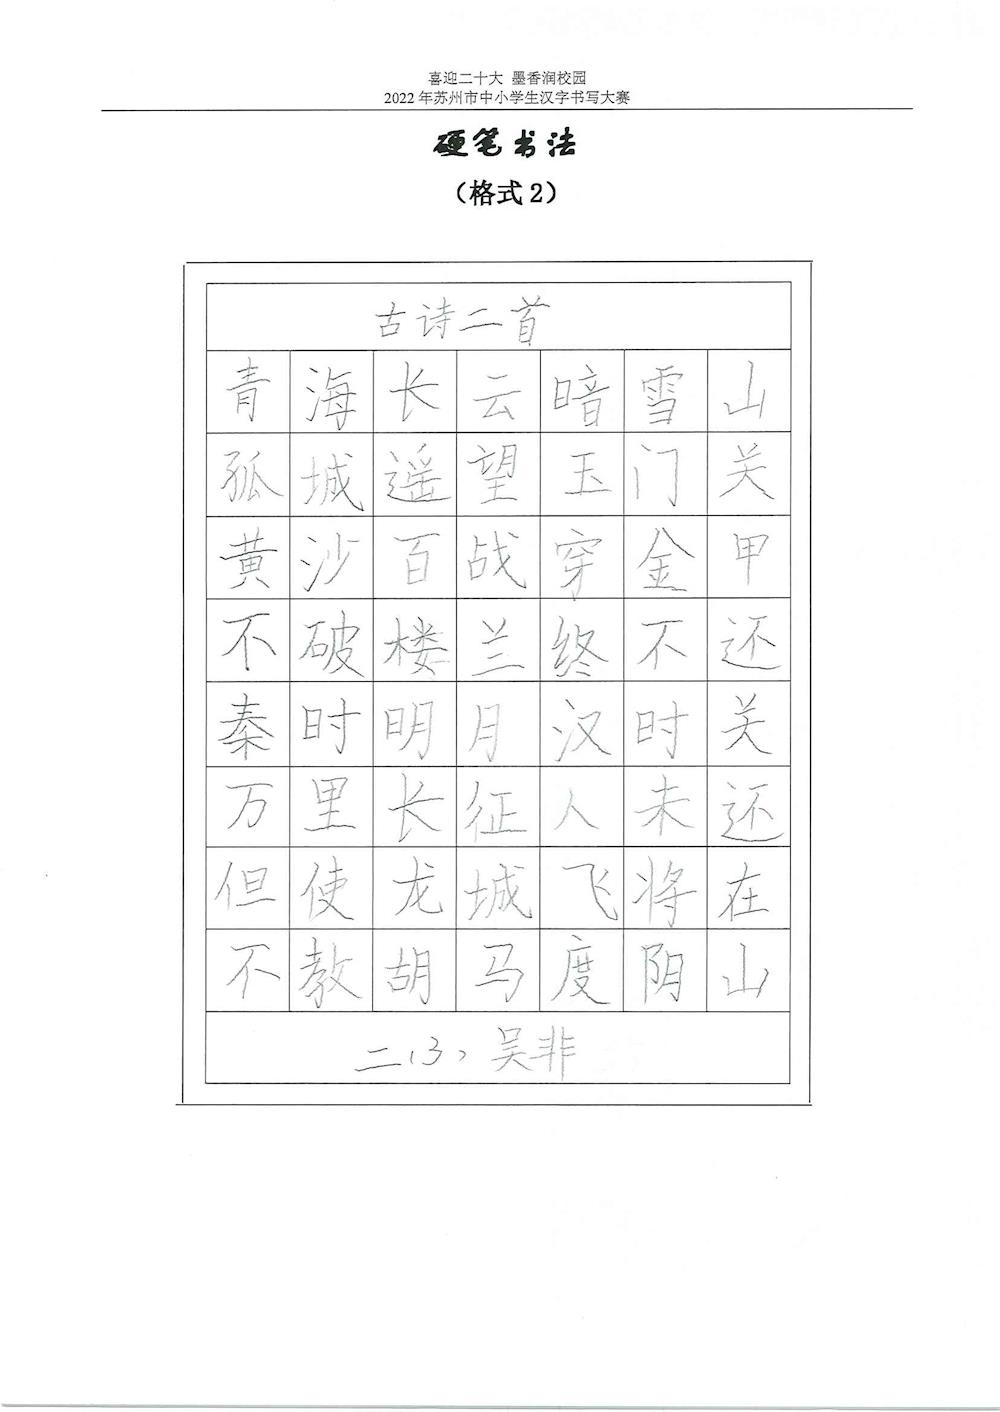 喜迎二十大 墨香润校园
2022年苏州市中小学生汉字书写大赛
硬笔书法
（格式2）
古诗二首
青海长云暗雪山
孤城遥望玉门关
黄沙百战穿金甲
不破楼兰终不还
秦时明月汉时关
万里长征人未还
但使龙城飞将在
不教胡马度阴山
二（3）吴非